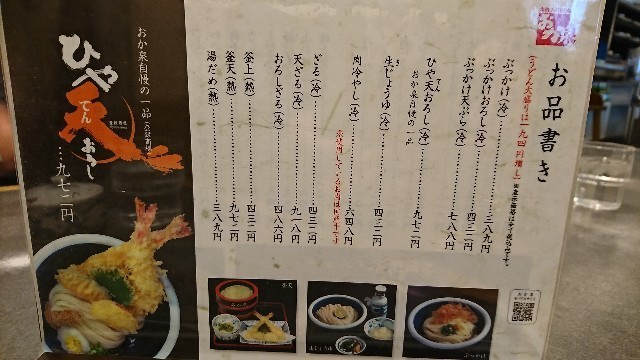 お品書き
(うどん大盛りは一九四円増し)
ぶっかけ(冷)……三八九円
ぶっかけおろし(冷)……四三二円
ぶっかけ天ぷら(冷)……七八八円
ひや天おろし(冷)……九七二円
おか泉自慢の一品
生じょうゆ(冷)……四三二円
肉冷やし(冷)……六四八円
ざる(冷)……四三二円
天ざる(冷)……九一八円
おろしざる(冷)……四八六円
釜上(熱)……四三二円
釜天(熱)……九七二円
湯だめ(熱)……三八九円
おか泉自慢の一品
(登録商標)
ひや天おろし
てん
…九七二円
釜天
生じょうゆ
ぶっかけ